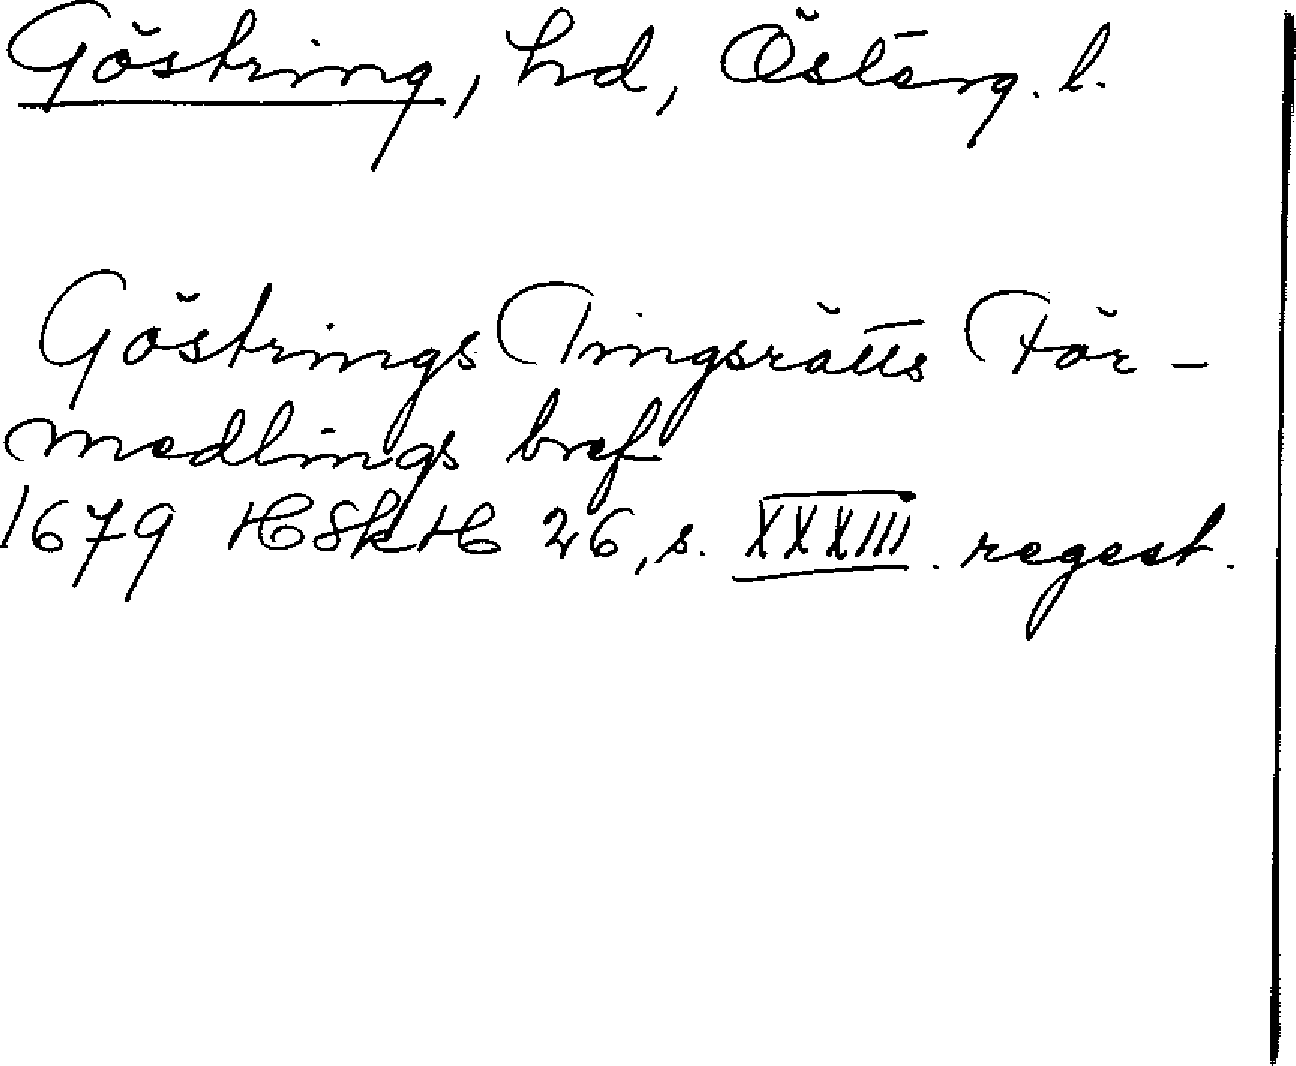 Göstring, hd, Österg. l.
Göstrings Tingsrätts För-
medlings bref
1679 HSkH 26, s. XXXIII. regest.